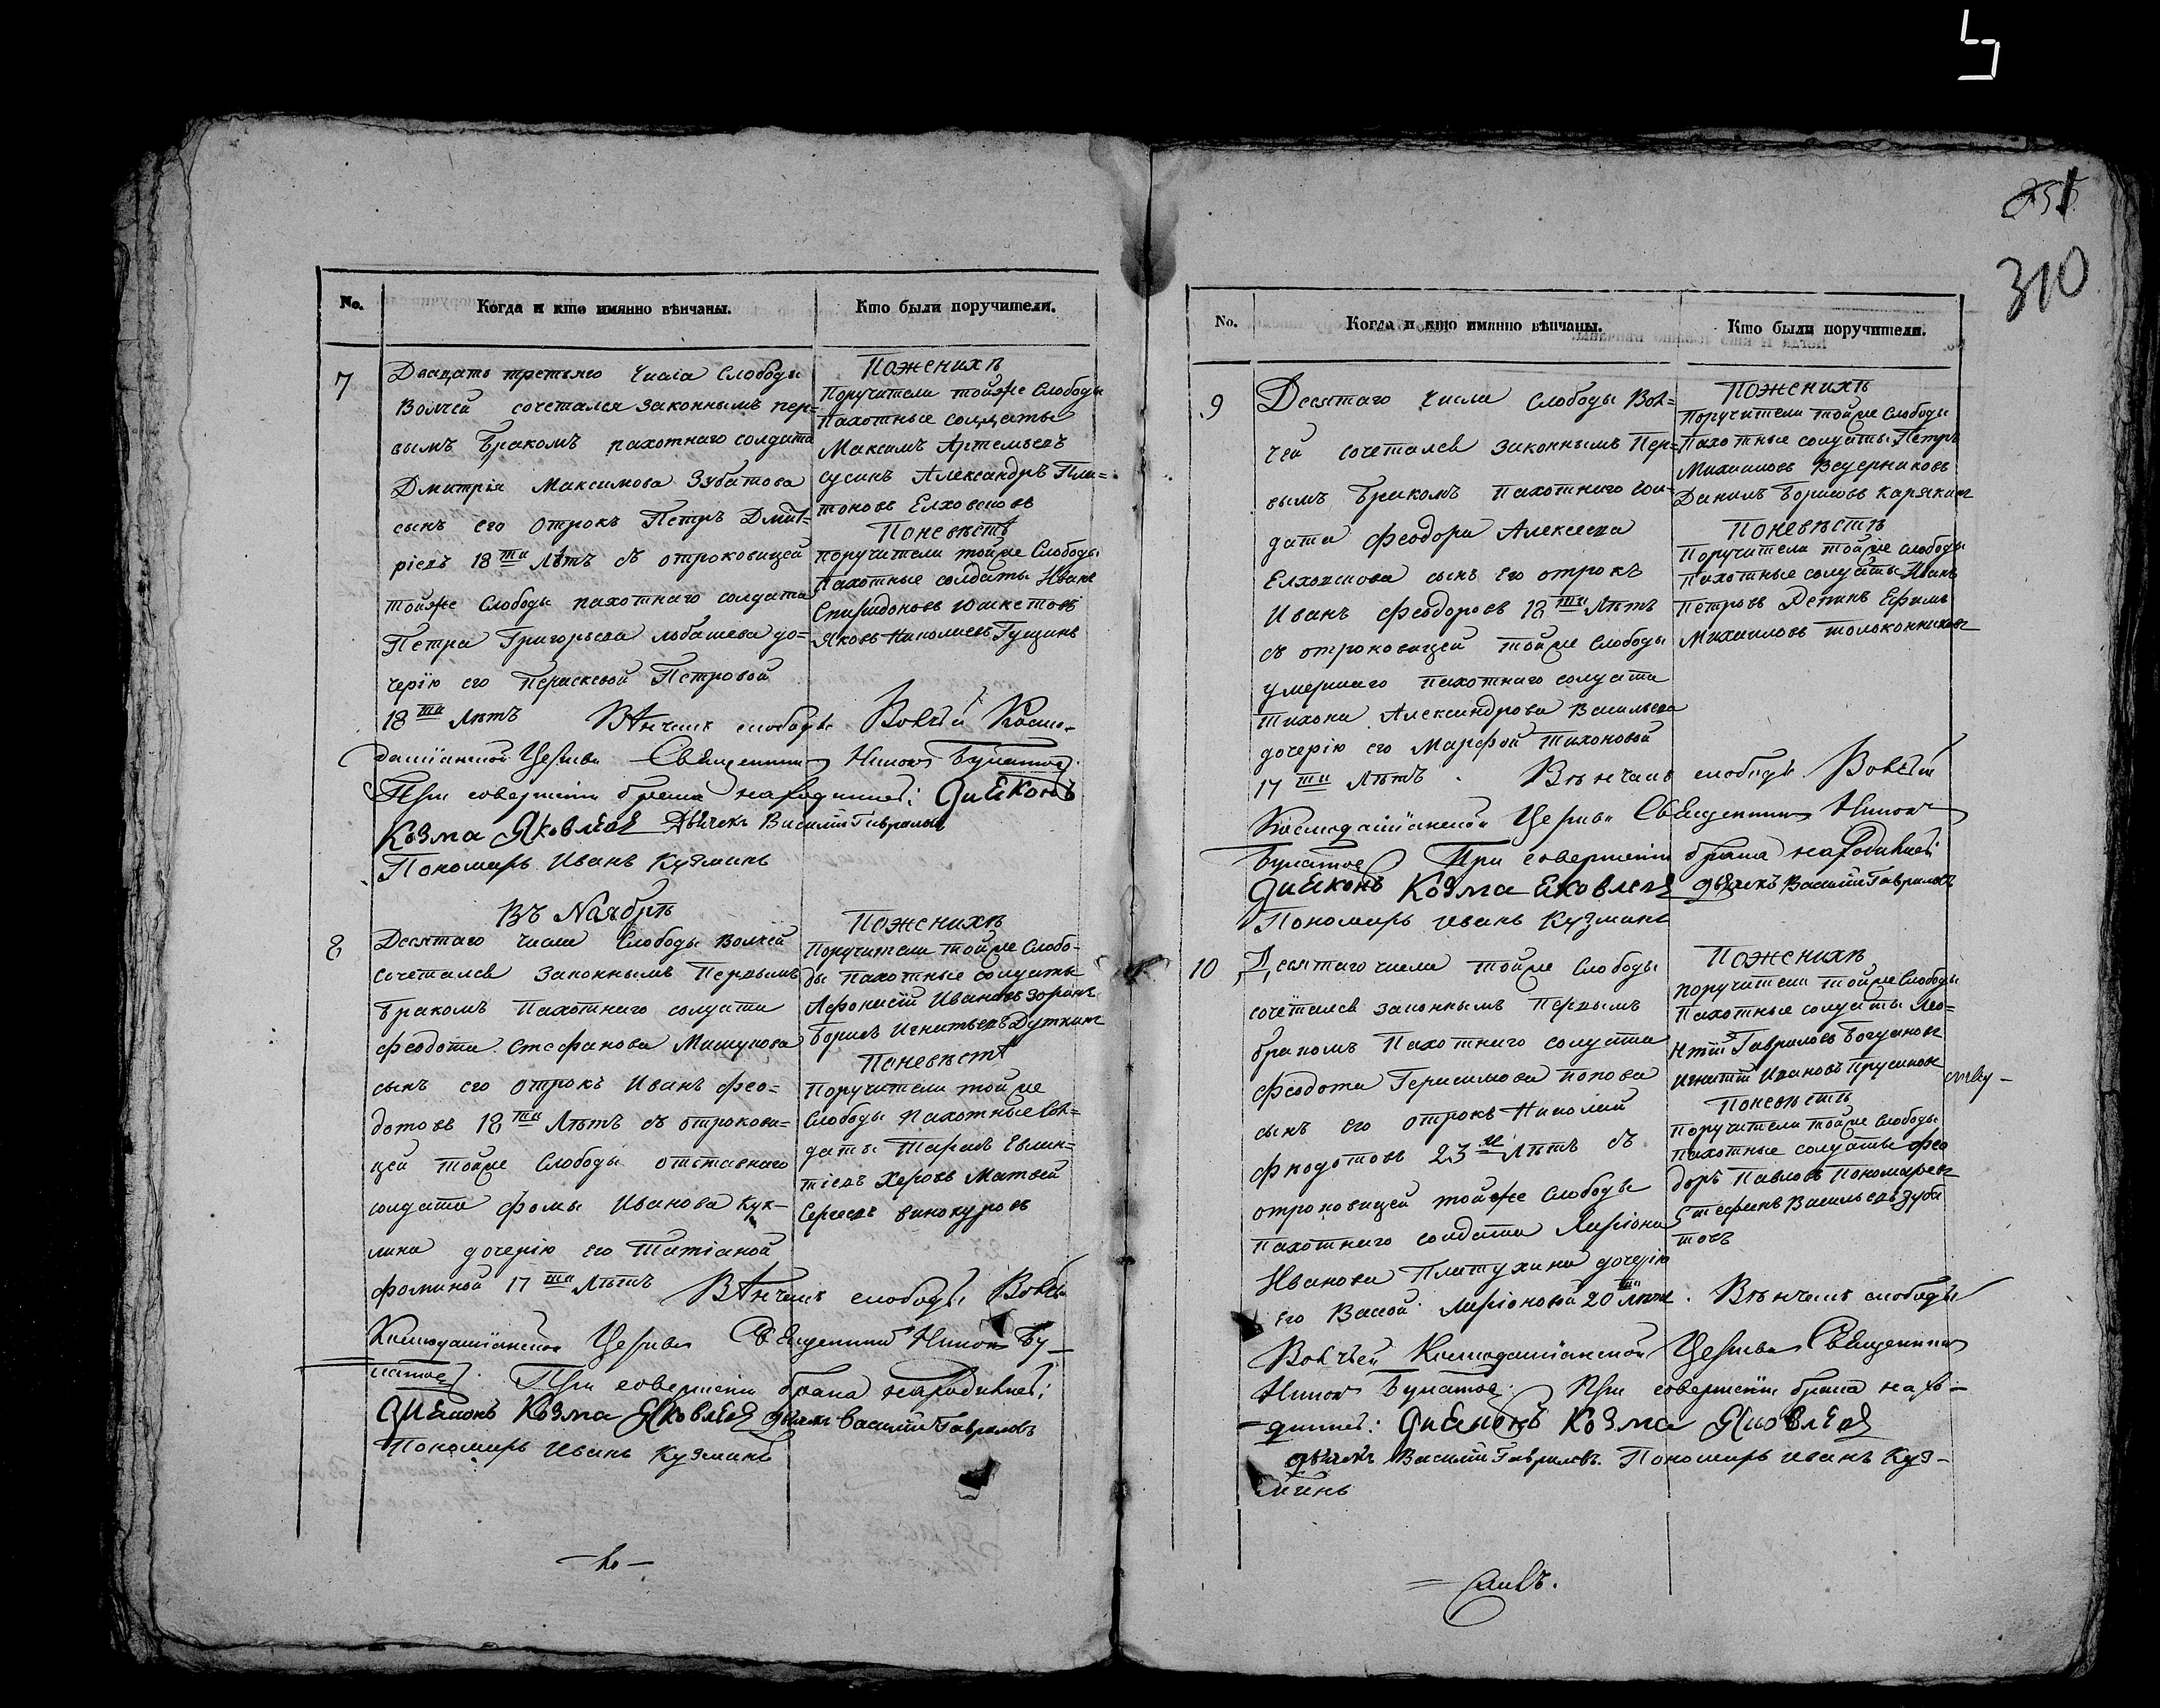 310
No.
Когда и кто имянно вѣнчаны.
Кто были поручители.
7
Двадцать третьяго числа слободы
Волчей сочетался законнымъ пер=
вымъ бракомъ пахотнаго солдата
Дмитрія Максимова Зубатова
сынъ его отрокъ Петръ Дмит=
ріевъ 18 ти лѣтъ съ отроковицей
тойже слободы пахотнаго солдата
Петра Григорьева Лобашева до=
черію его Параскевой Петровой
18 ти лѣтъ Вѣнчалъ слободы Волчьй Космо-
даміанской Церкви Священникъ Никонъ Булатов
При совершеніи брака находились: Диаконъ
Козма Яковлевъ Дьячекъ Василій Гавриловъ
Пономарь Иванъ Кузминъ
Пожениху
Поручители тойже слободы
Пахотные солдаты
Максимъ Артемьевъ
Александръ Пла=
тоновъ Елховсковъ
Поневѣстѣ
поручители тойже Слободы
Пахотные солдаты Иванъ
Спиридоновъ
Яковъ Николаевъ Гущинъ
Въ Ноябрѣ
8
Десятаго числа слободы Волчей
сочетался законнымъ первымъ
бракомъ пахотнаго солдата
Феодота Стефанова Мишукова
сынъ его отрокъ Иванъ Фео=
дотовъ 18 ти лѣтъ съ отрокови=
цей тойже слободы отставнаго
солдата Фомы Иванова Кук-
лина дочерію его Татіаной
Фоминой 17 ти лѣтъ Вѣнчалъ слободы Волчьй
Космодаміанской Церкви Священникъ Никонъ Бу-
латов. При совершеніи брака находились:
Диаконъ Козма Яковлевъ дьячекъ Василій Гавриловъ
Пономарь Иванъ Кузминъ
Поженихѣ
Поручители тойже слобо-
ды пахотные солдаты
Афонасій Ивановъ Зоринъ
Борисъ Игнатьевъ Дуткинъ
Поневѣстѣ
Поручители тойже
слободы пахотные сол=
даты Тарасъ Евлам=
піевъ Херовъ Матвей
Сергеевъ Винокуровъ
No.
Когда и кто имянно вѣнчаны.
Кто были поручители.
9
Десятаго числа слободы Вол=
чей сочетался законнымъ пер=
вымъ бракомъ пахотнаго сол=
дата Феодора Алексеева
сынъ его отрокъ
Иванъ Феодоровъ 18 ти лѣтъ
съ отроковицей тойже слободы
умершаго пахотнаго солдата
Тихона Александрова Васильева
дочерію его Марфой Тихоновой
17 ти лѣтъ. Вѣнчалъ слободы Волчьй
Космодаміанской Церкви Священникъ Никонъ
Булатов При совершеніи брака находились:
Диаконъ Козма Яковлевъ дьячекъ Василій Гавриловъ
Пономарь Иванъ Кузминъ
Поженихѣ
Поручители тойже слободы
Пахотные солдаты Петръ
Михаиловъ
Данилъ Борисовъ Карякинъ
Поневѣстѣ
Поручители тойже слободы
пахотные солдаты Иванъ
Петровъ Репинъ Ефимъ
Михаиловъ Толоконниковъ
10
Десятаго числа тойже слободы
сочетался законнымъ первымъ
бракомъ пахотнаго солдата
Феодота Герасимова Попова
сынъ его отрокъ Николай
Феодотовъ 23 лѣтъ съ
отроковицей тойже слободы
пахотнаго солдата Ларіона
Иванова Платухина дочерію
его Васой Ларіоновой 20 ти лѣтъ. Вѣнчалъ слободы
Волчьей Космодаміанской Церкви Священникъ
Никонъ Булатов. При совершеніи брака нахо-
дились: Диаконъ Козма Яковлевъ
дьячекъ Василій Гавриловъ. Пономарь Иванъ Куз-
минъ
Поженихѣ
поручители тойже слободы
Пахотные солдаты Лео=
нтій Гавриловъ Богдановъ
Игнатій Ивановъ Прусаковъ
Поневѣстѣ
поручители тойже слободы
пахотные солдаты Фео
доръ Павловъ Пономаревъ
Стефанъ Васильевъ Зуба
товъ